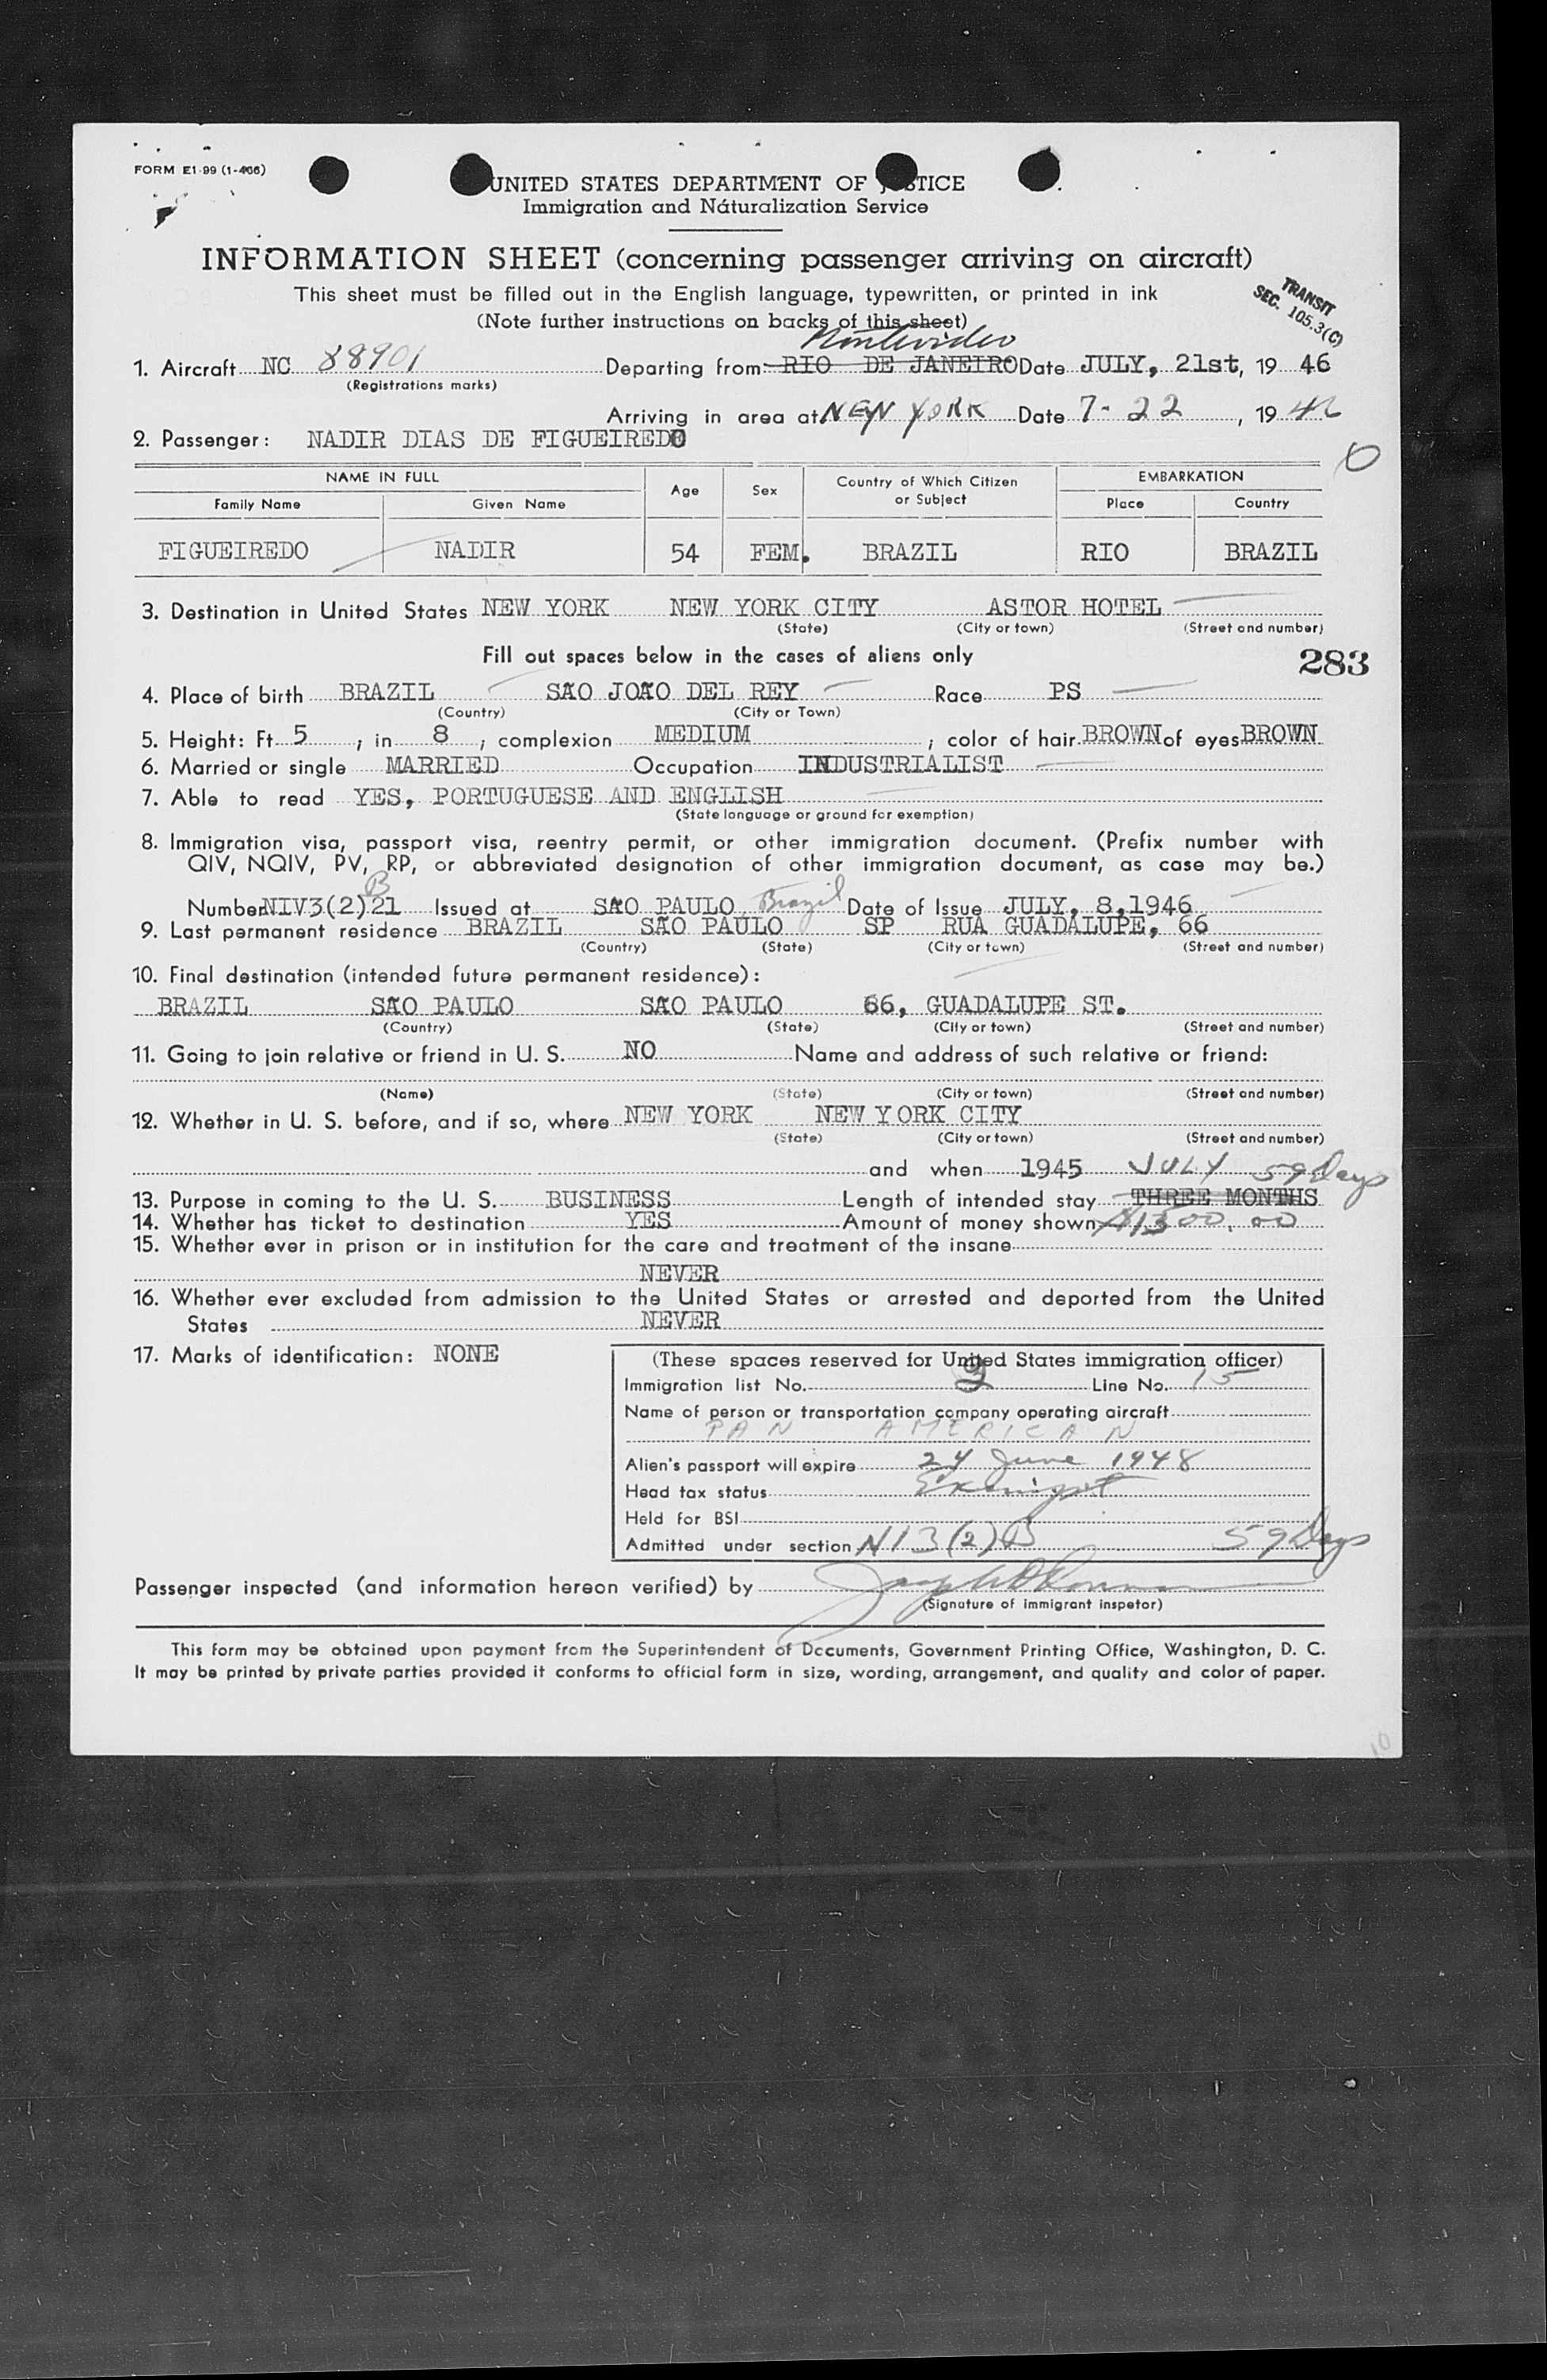 FORM E1-99 (1-466)
UNITED STATES DEPARTMENT OF JUSTICE
Immigration and Náturalization Service
INFORMATION SHEET (concerning passenger arriving on aircraft)
This sheet must be filled out in the English language, typewritten, or printed in ink
(Note further instructions on backs of this sheet)
TRANSIT
SEC. 105.3(C)
Montevideo
1. Aircraft NC 88901 Departing from RIO DE JANEIRO Date JULY, 21st, 19 46
(Registrations marks)
Arriving in area at NEW YORK Date 7-22, 1946
2. Passenger: NADIR DIAS DE FIGUEIREDO
NAME IN FULL Age Sex Country of Which Citizen or Subject EMBARKATION
Family Name Given Name Place Country
FIGUEIREDO NADIR 54 FEM. BRAZIL RIO BRAZIL
3. Destination in United States NEW YORK NEW YORK CITY ASTOR HOTEL
(State) (City or town) (Street and number)
Fill out spaces below in the cases of aliens only
283
4. Place of birth BRAZIL SÃO JOÃO DEL REY Race PS
(Country) (City or Town)
5. Height: Ft. 5 ; in 8 ; complexion MEDIUM ; color of hair BROWN of eyes BROWN
6. Married or single MARRIED Occupation INDUSTRIALIST
7. Able to read YES, PORTUGUESE AND ENGLISH
(State language or ground for exemption)
8. Immigration visa, passport visa, reentry permit, or other immigration document. (Prefix number with
QIV, NQIV, PV, RP, or abbreviated designation of other immigration document, as case may be.)
B
Number NIV3(2)21 Issued at SÃO PAULO Brazil Date of Issue JULY, 8,1946
9. Last permanent residence BRAZIL SÃO PAULO SP RUA GUADALUPE, 66
(Country) (State) (City or town) (Street and number)
10. Final destination (intended future permanent residence):
BRAZIL SÃO PAULO SÃO PAULO 66, GUADALUPE ST.
(Country) (State) (City or town) (Street and number)
11. Going to join relative or friend in U. S. NO Name and address of such relative or friend:
(Name) (State) (City or town) (Street and number)
12. Whether in U. S. before, and if so, where NEW YORK NEW YORK CITY
(State) (City or town) (Street and number)
and when 1945 JULY 59 Days
13. Purpose in coming to the U. S. BUSINESS Length of intended stay THREE MONTHS
14. Whether has ticket to destination YES Amount of money shown $1300.00
15. Whether ever in prison or in institution for the care and treatment of the insane
NEVER
16. Whether ever excluded from admission to the United States or arrested and deported from the United
States NEVER
17. Marks of identification: NONE
(These spaces reserved for United States immigration officer)
Immigration list No. 3 Line No. 15
Name of person or transportation company operating aircraft
PAN AMERICAN
Alien's passport will expire 24 June 1948
Head tax status Exempt
Held for BSI
Admitted under section N13(2)B 59 Days
Passenger inspected (and information hereon verified) by
(Signature of immigrant inspetor)
This form may be obtained upon payment from the Superintendent of Documents, Government Printing Office, Washington, D. C.
It may be printed by private parties provided it conforms to official form in size, wording, arrangement, and quality and color of paper.
10